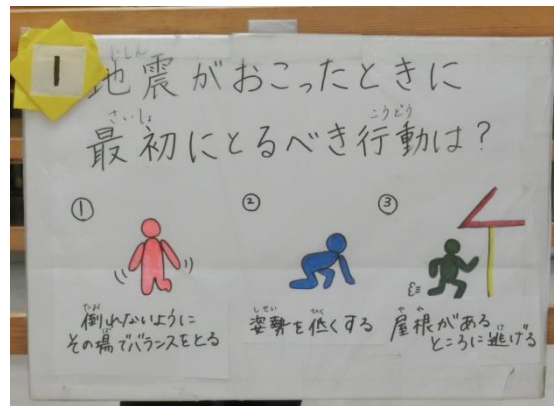 1
じしん
地震がおこったときに
さいしょ こうどう
最初にとるべき行動は?
① ② ③
たお
倒れないように
その場でバランスをとる
しせい ひく
姿勢を低くする
やね
屋根がある
に
ところに逃げる